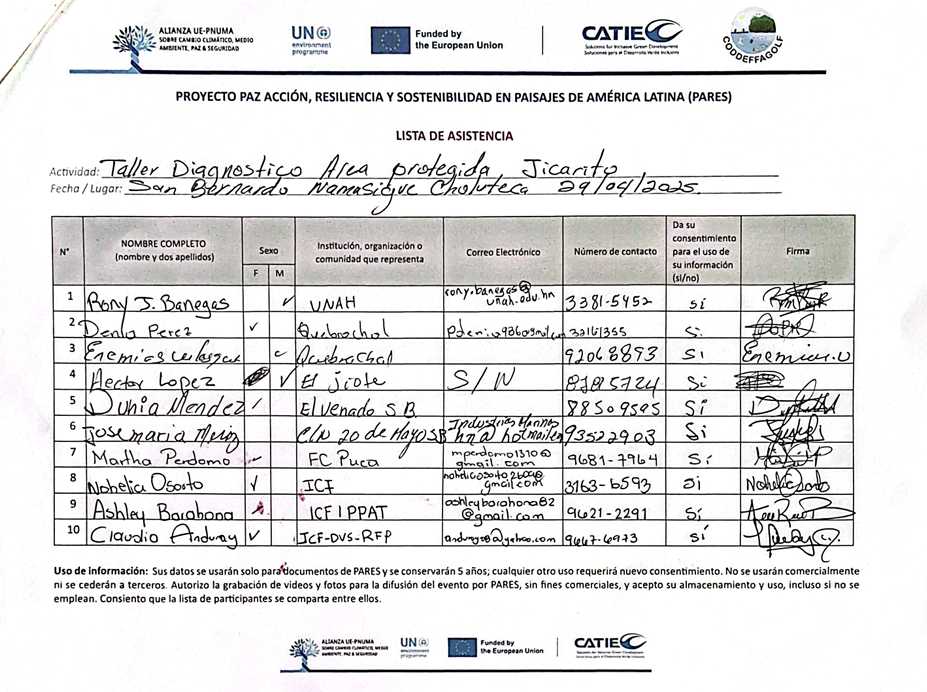 ALIANZA UE-PNUMA
SOBRE CAMBIO CLIMÁTICO, MEDIO
AMBIENTE, PAZ & SEGURIDAD
UN
environment
programme
Funded by
the European Union
CATIE
Solutions for Inclusive Green Development
Soluciones para el Desarrollo Verde Inclusivo
CODDEFFAGOLF
PROYECTO PAZ ACCIÓN, RESILIENCIA Y SOSTENIBILIDAD EN PAISAJES DE AMÉRICA LATINA (PARES)
LISTA DE ASISTENCIA
Actividad: Taller Diagnostico Area protegida Jicarito
Fecha / Lugar: San Bernardo Namasigue Choluteca 29/04/2025.
N° NOMBRE COMPLETO (nombre y dos apellidos) Sexo F M Institución, organización o comunidad que representa Correo Electrónico Número de contacto Da su consentimiento para el uso de su información (si/no) Firma
1 Rony J. Banegas ✓ UNAH rony.banegas@unah.edu.hn 3381-5452 sí
2 Denia Perez ✓ Quebrachal Si
3 Enemias ✓ Quebrachal 92068893 Si Enemias.v
4 Hector Lopez ✓ El jiote S/N Si
5 Dunia Mendez ✓ El venado S.B 88509595 Sí
6 Jose maria C/N 20 de Mayo SB 93522903 Si
7 Martha Perdomo ✓ FC Puca mperdomo1310@gmail.com 9681-7964 Sí
8 Nohelia Osorto ✓ ICF gmail.com 3163-6593 Si Nohelia Osorto
9 Ashley Barahona ICF | PPAT ashleybarahona82@gmail.com 9621-2291 Sí
10 Claudia Anduray ✓ ICF-DVS-RFP 9667-6973 sí
Uso de información: Sus datos se usarán solo para documentos de PARES y se conservarán 5 años; cualquier otro uso requerirá nuevo consentimiento. No se usarán comercialmente
ni se cederán a terceros. Autorizo la grabación de videos y fotos para la difusión del evento por PARES, sin fines comerciales, y acepto su almacenamiento y uso, incluso si no se
emplean. Consiento que la lista de participantes se comparta entre ellos.
ALIANZA UE-PNUMA
SOBRE CAMBIO CLIMÁTICO, MEDIO
AMBIENTE, PAZ & SEGURIDAD
UN
environment
programme
Funded by
the European Union
CATIE